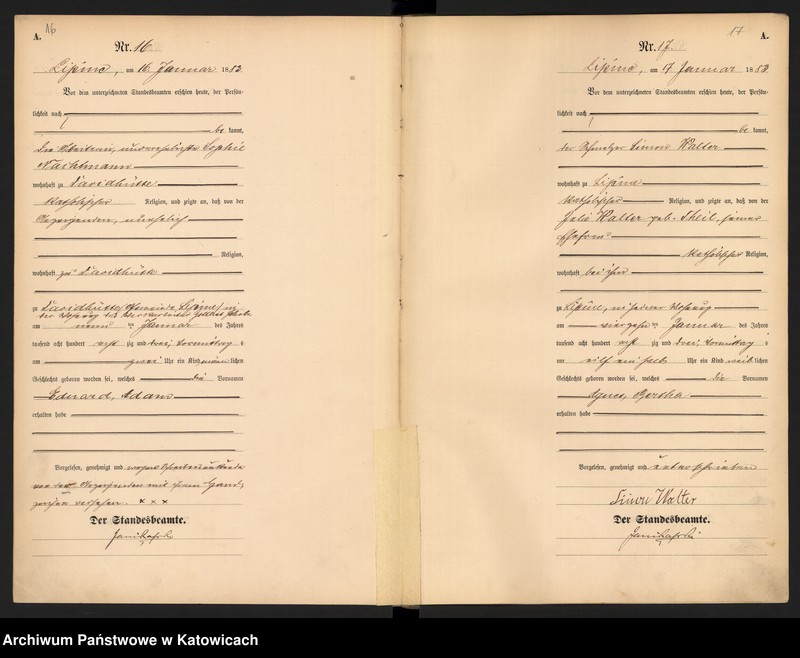 A. 16
Nr. 16
Lipine, am 16. Januar 1883
Vor dem unterzeichneten Standesbeamten erschien heute, der Persön-
lichkeit nach
be kannt,
die Arbeiterin, unverehelichte Sophie
Nachtmann
wohnhaft zu Davidhütte
katholischer Religion, und zeigte an, daß von der
Anzeigenden, unehelich
Religion,
wohnhaft zu Davidhütte
zu Davidhütte, Gemeinde Lipine, in
der Wohnung des
am neun ten Januar des Jahres
tausend acht hundert acht zig und drei, Vormittag s
um zwei Uhr ein Kind männ lichen
Geschlechts geboren worden sei, welches die Vornamen
Eduard, Adam
erhalten habe
Vorgelesen, genehmigt und wegen Schreibensunkunde
von der Anzeigenden mit ihrem Hand-
zeichen versehen. x x x
Der Standesbeamte.
17 A.
Nr. 17
Lipine, am 17. Januar 1883
Vor dem unterzeichneten Standesbeamten erschien heute, der Persön-
lichkeit nach
be kannt,
der Schmelzer Simon Walter
wohnhaft zu Lipine
katholischer Religion, und zeigte an, daß von der
Julie Walter geb. Theil, seiner
Ehefrau
katholischer Religion,
wohnhaft bei ihm
zu Lipine, in seiner Wohnung
am vierzehn ten Januar des Jahres
tausend acht hundert acht zig und drei, Vormittag s
um eilf ein halb Uhr ein Kind weib lichen
Geschlechts geboren worden sei, welches die Vornamen
Agnes, Bertha
erhalten habe
Vorgelesen, genehmigt und unterschrieben
Simon Walter
Der Standesbeamte.
Archiwum Państwowe w Katowicach